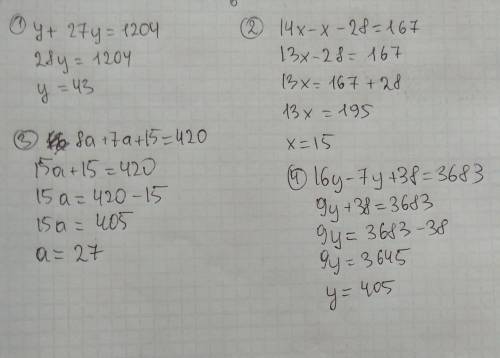 ① y + 27y = 1204
28y = 1204
y = 43
② 14x - x - 28 = 167
13x - 28 = 167
13x = 167 + 28
13x = 195
x = 15
③ 8a + 7a + 15 = 420
15a + 15 = 420
15a = 420 - 15
15a = 405
a = 27
④ 16y - 7y + 38 = 3683
9y + 38 = 3683
9y = 3683 - 38
9y = 3645
y = 405